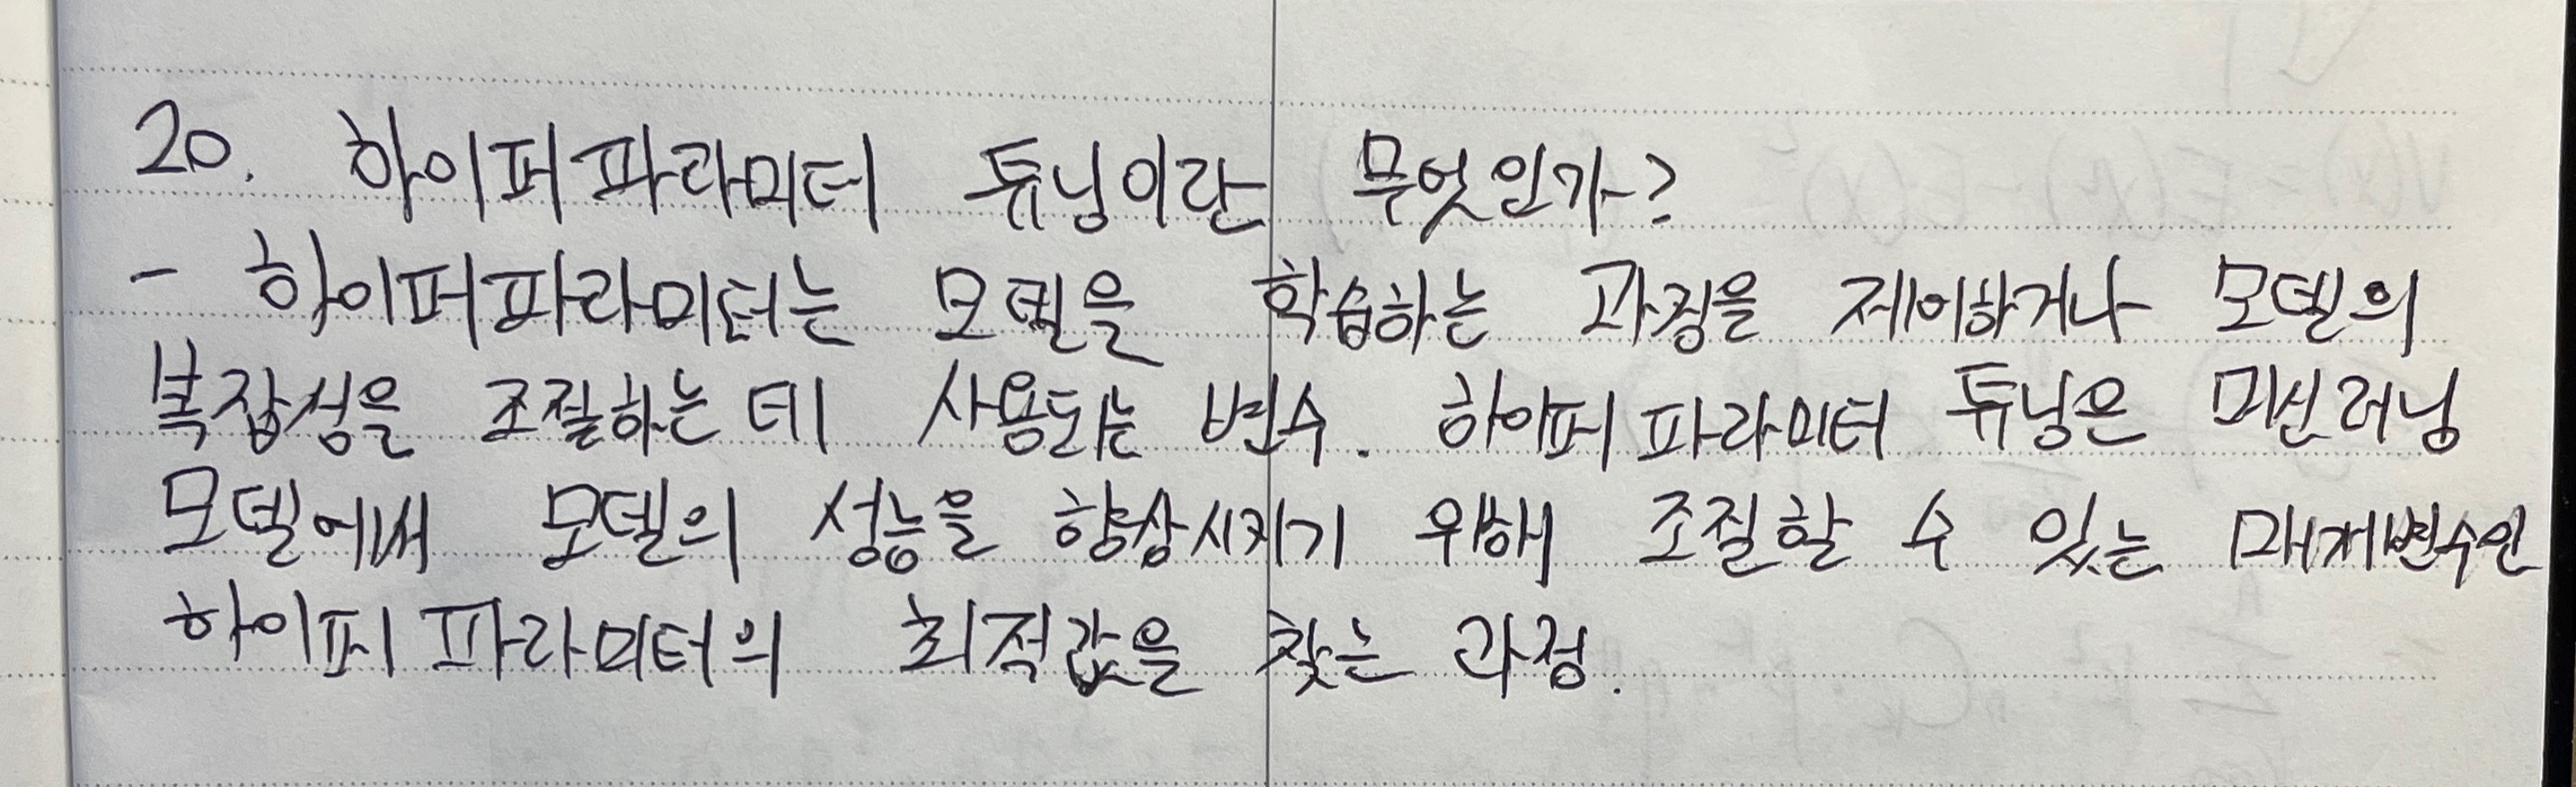 20. 하이퍼파라미터 튜닝이란 무엇인가?
- 하이퍼파라미터는 모델을 학습하는 과정을 제어하거나 모델의
복잡성을 조절하는 데 사용되는 변수. 하이퍼파라미터 튜닝은 머신러닝
모델에서 모델의 성능을 향상시키기 위해 조절할 수 있는 매개변수인
하이퍼파라미터의 최적값을 찾는 과정.